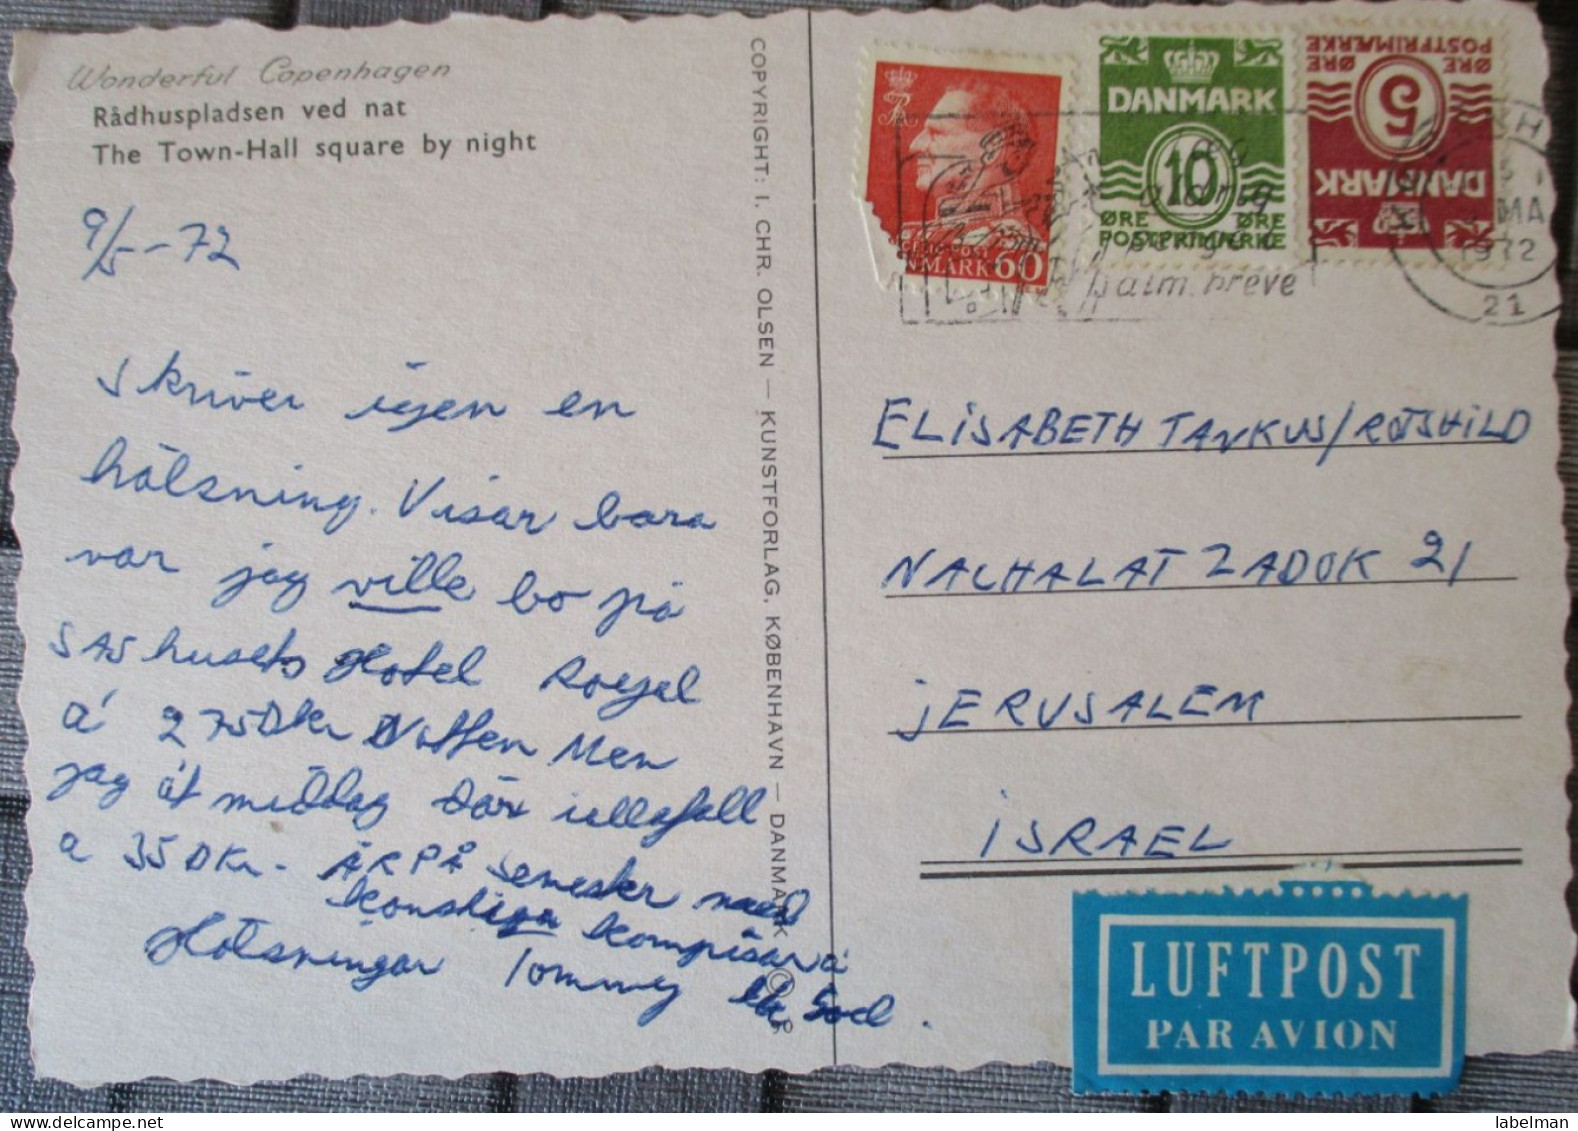 Wonderful Copenhagen
Rådhuspladsen ved nat
The Town-Hall square by night
9/5-72
Skriver igen en
hälsning. Visar bara
var jag ville bo på
SAS husets Hotel Royal
a' 275 Dkr Natten Men
jag åt middag där
a 35 DKr - ÄR PÅ semester med
konstiga kompisar
Hälsningar Tommy
COPYRIGHT: I. CHR. OLSEN — KUNSTFORLAG, KØBENHAVN — DANMARK
60
DANMARK
10
ØRE ØRE
POSTFRIMÆRKE
DANMARK
5
ØRE ØRE
POSTFRIMÆRKE
alm. breve
1972
21
ELISABETH TANKUS/ROTSHILD
NACHALAT ZADOK 21
JERUSALEM
ISRAEL
LUFTPOST
PAR AVION
labelman
www.delcampe.net